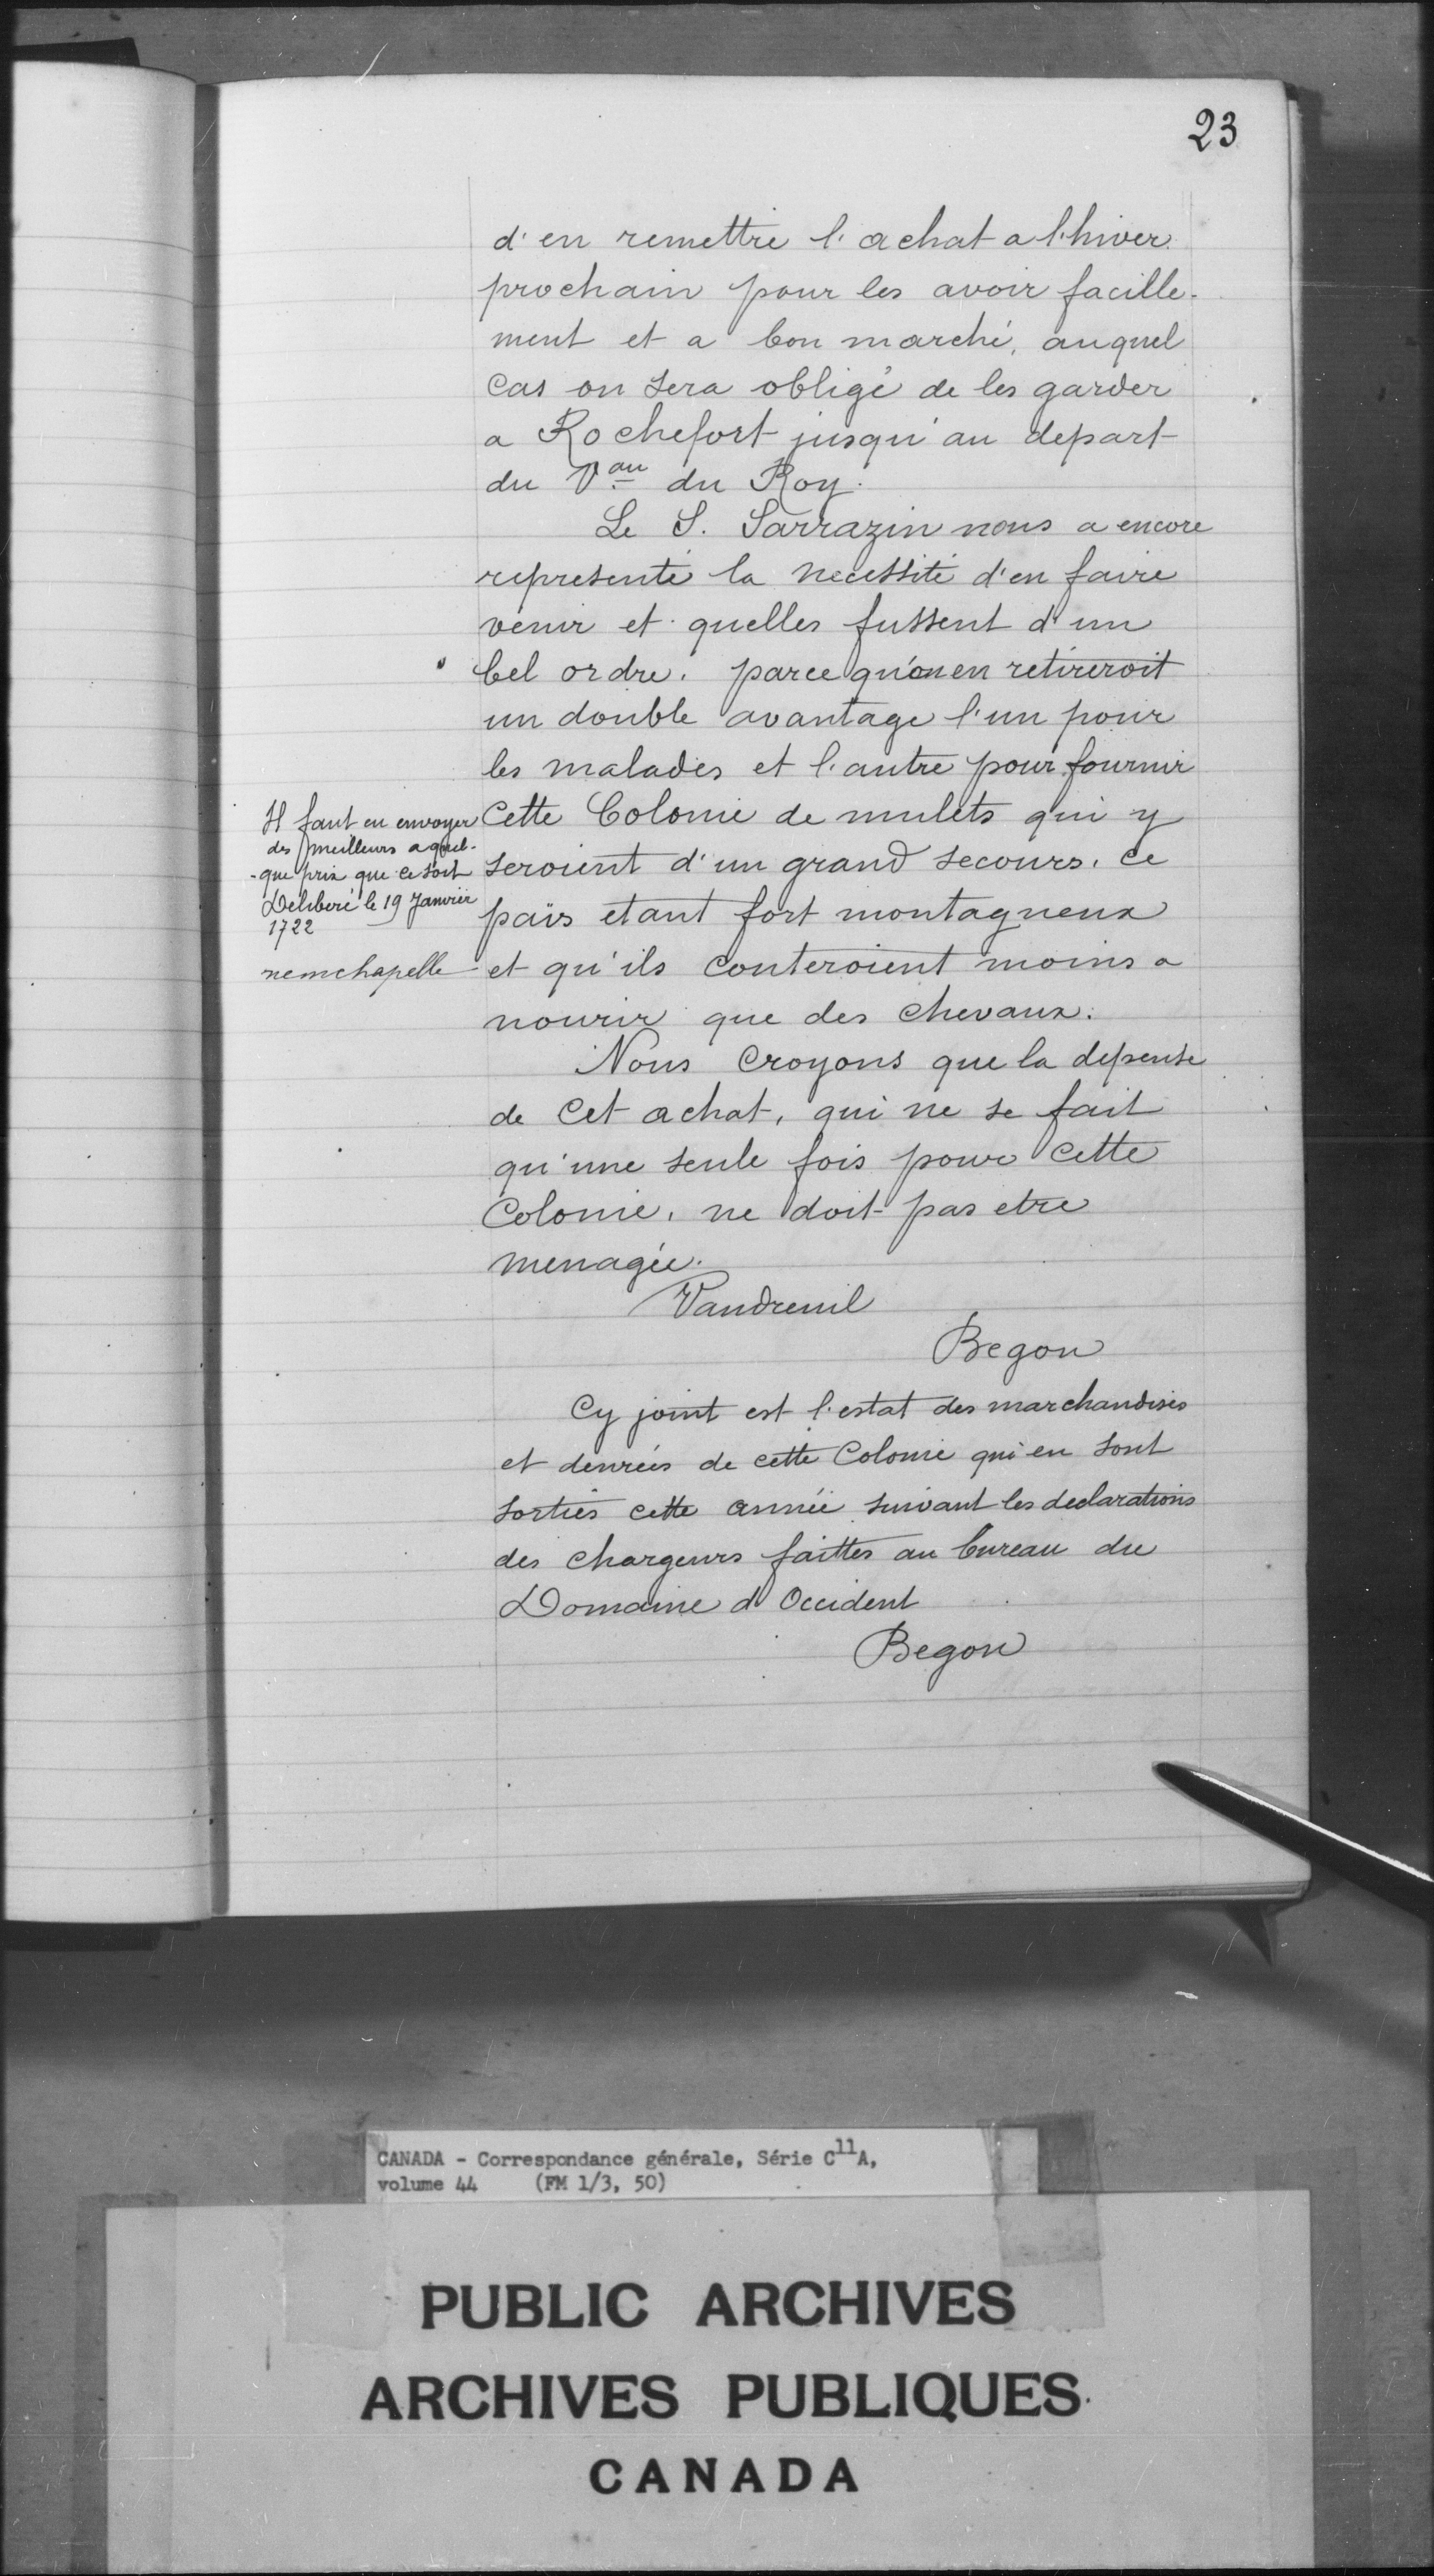 23
d'en remettre l'achat a l'hiver
prochain pour les avoir facille-
ment et a bon marché, auquel
cas on sera obligé de les garder
a Rochefort jusqu'au depart
du Vau du Roy.
Le S. Sarrazin nous a encore
representé la necessité d'en faire
venir et quelles fussent d'un
bel ordre, parcequ'on en retireroit
un double avantage l'un pour
les malades et l'autre pour fournir
Cette Colonie de mulets qui y
seroient d'un grand secours, ce
païs etant fort montagneux
et qu'ils couteroient moins a
nourir que des chevaux.
Il faut en envoyer
des meilleurs a quel-
-que prix que ce soit
Deliberé le 19 Janvier
1722
nemchapelle
Nous croyons que la depense
de cet achat, qui ne se fait
qu'une seule fois pour cette
Colonie, ne doit pas etre
menagée.
Vaudreuil
Begon
Cy joint est l'estat des marchandises
et denrées de cette Colonie qui en sont
sorties cette année suivant les declarations
des chargeurs faittes au bureau du
Domaine d'Occident
Begon
CANADA - Correspondance générale, Série C11A,
volume 44 (FM 1/3, 50)
PUBLIC ARCHIVES
ARCHIVES PUBLIQUES
CANADA